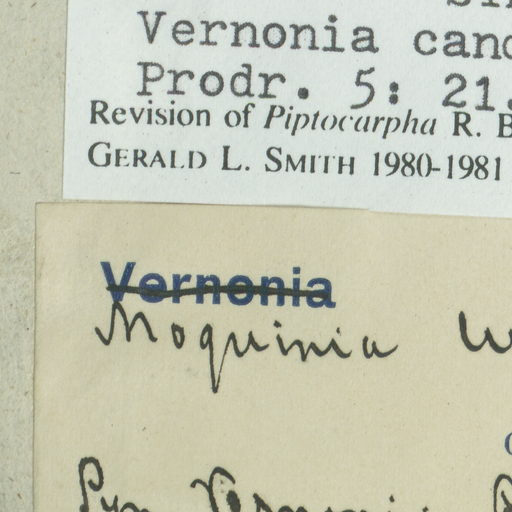 Vernonia
Prodr. 5: 21.
Revision of Piptocarpha R. B
GERALD L. SMITH 1980-1981
Vernonia
Moquinia
Syn Vernonia